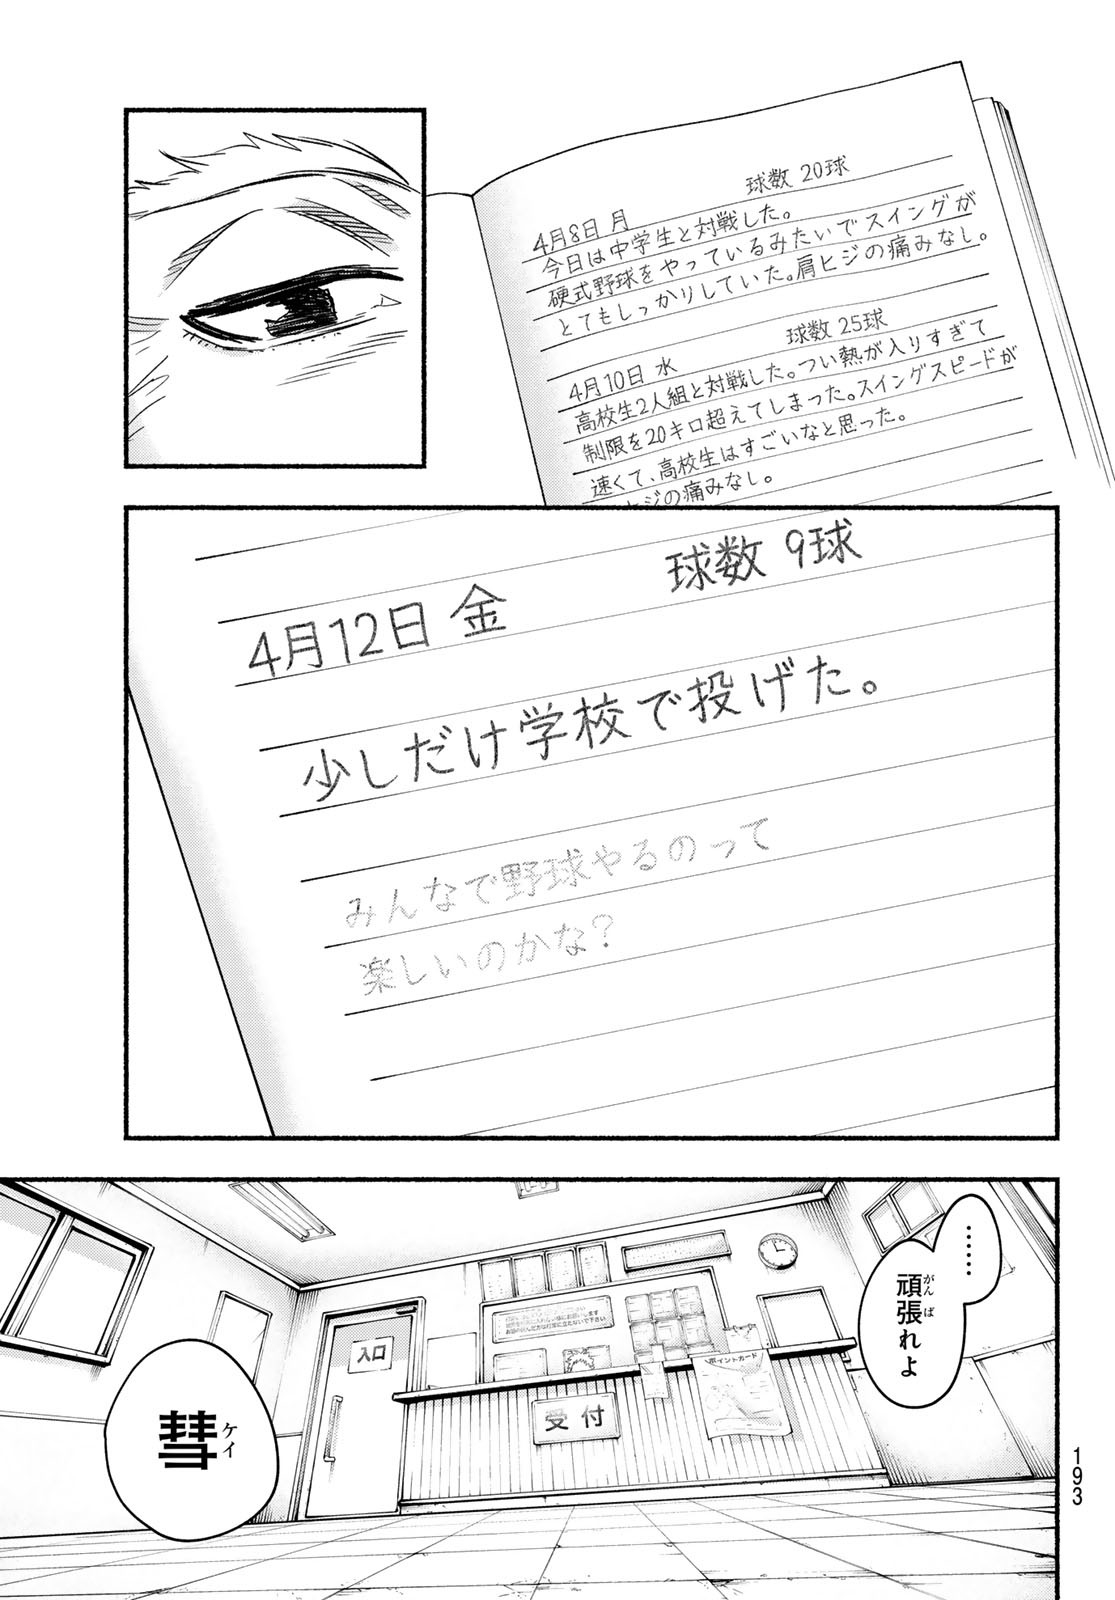 球数 20球
4月8日 月
今日は中学生と対戦した。
硬式野球をやっているみたいでスイングが
とてもしっかりしていた。肩ヒジの痛みなし。
球数 25球
4月10日 水
高校生2人組と対戦した。つい熱が入りすぎて
制限を20キロ超えてしまった。スイングスピードが
速くて、高校生はすごいなと思った。
ヒジの痛みなし。
球数 9球
4月12日 金
少しだけ学校で投げた。
みんなで野球やるのって
楽しいのかな?
……
頑張れよ
がんば
入口
ポイントカード
受付
彗
ケイ
193